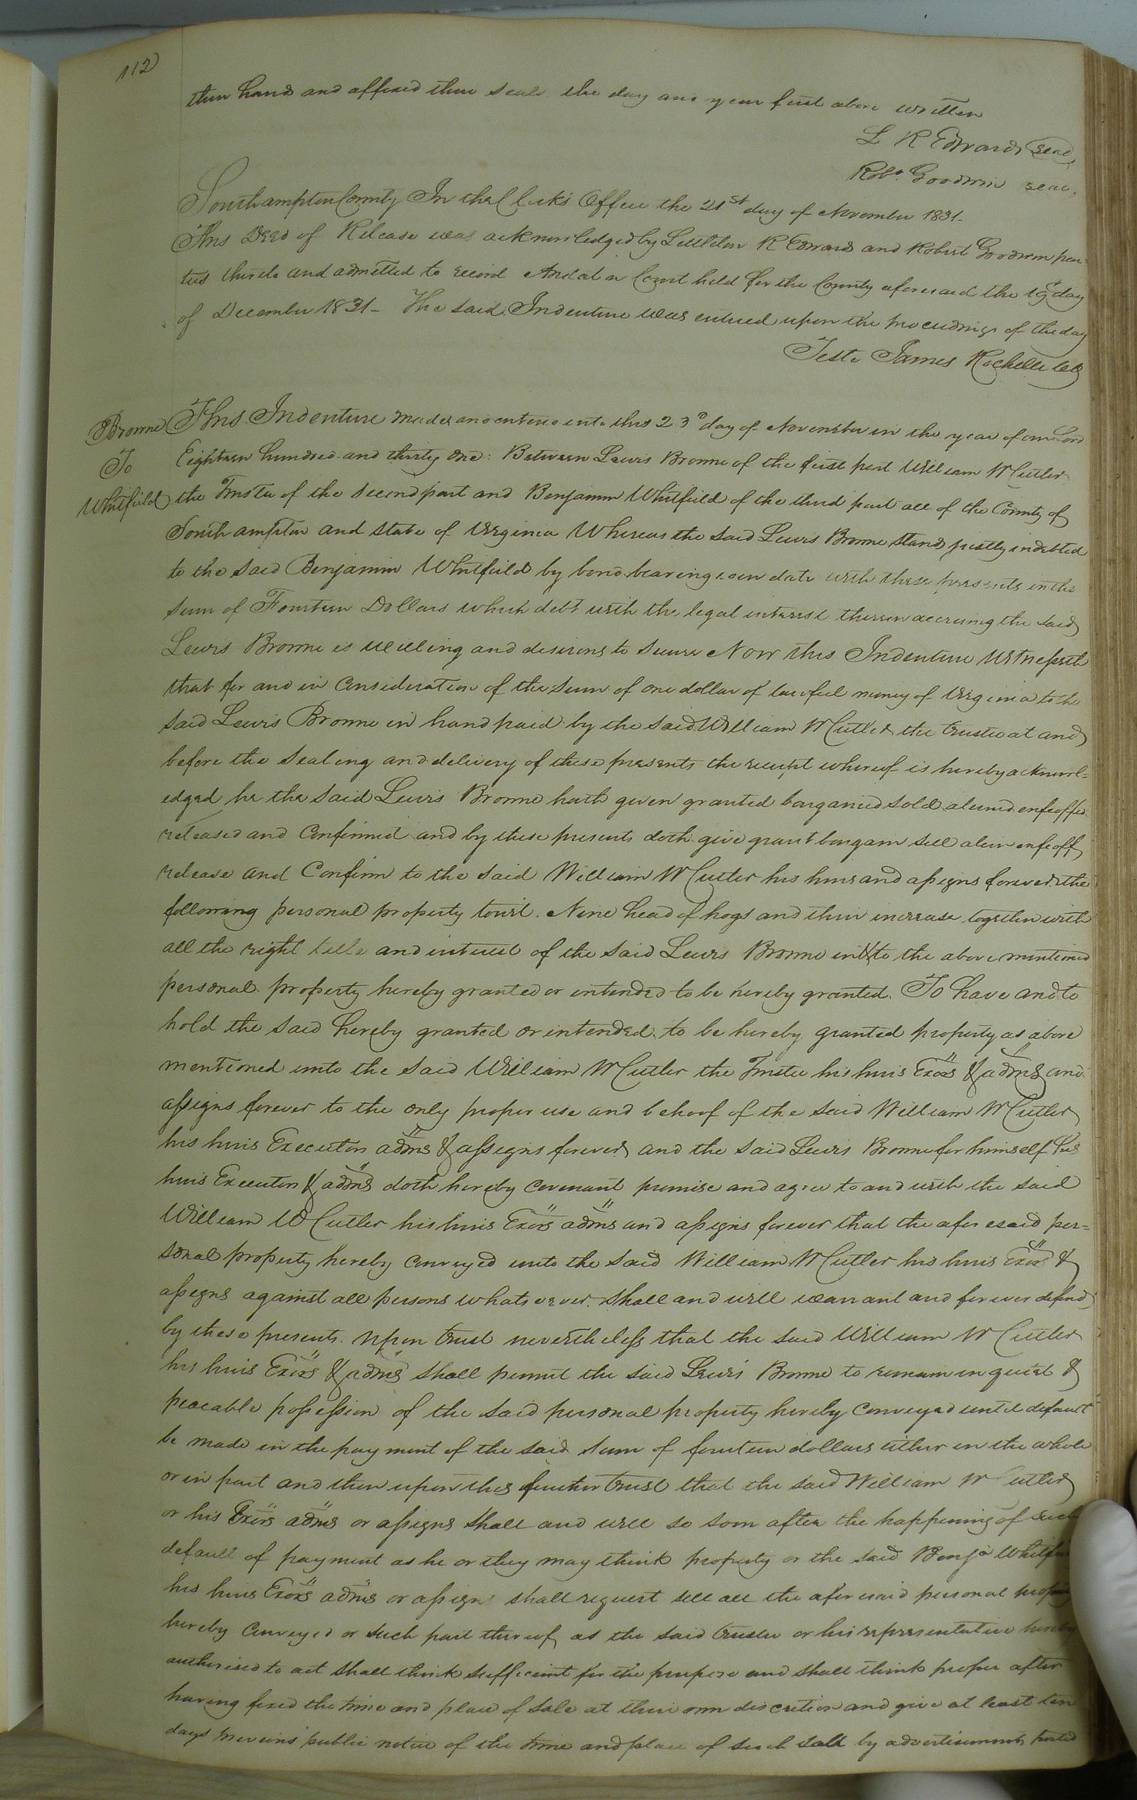 112
their hand and affixed their seals the day and year first above written
L R Edwards seal
Robt Goodwin seal
Southampton County In the Clerks Office the 21st day of November 1831-
This Deed of Release was acknowledged by Littleton R Edwards and Robert Goodwin par
ties thereto and admitted to record And at a Court held for the County aforesaid the 19th day
of December 1831- The said Indenture was entered upon the proceedings of the day
Teste James Rochelle Clk
Browne
To
Whitfield
This Indenture made and entered into this 23d day of November in the year of our Lord
Eighteen hundred and thirty one: Between Lewis Browne of the first part William W Cutler
the Trustee of the second part and Benjamin Whitfield of the third part all of the County of
Southampton and State of Virginia Whereas the said Lewis Browne stands justly indebted
to the said Benjamin Whitfield by bond bearing even date with these presents in the
sum of Fourteen Dollars which debt with the legal interest thereon accruing the said
Lewis Browne is willing and desirous to secure Now this Indenture Witnesseth
that for and in Consideration of the sum of one dollar of lawful money of Virginia to the
said Lewis Browne in hand paid by the said William W Cutler the trustee at and
before the sealing and delivery of these presents the receipt whereof is hereby acknowl-
edged he the said Lewis Browne hath given granted bargained sold aliened enfeoffed
released and Confirmed and by these presents doth give grant bargain sell alien enfeoff
release and Confirm to the said William W Cutler his heirs and assigns forever the
following personal property towit. Nine head of hogs and their increase together with
all the right title and interest of the said Lewis Browne in & to the above mentioned
personal property hereby granted or intended to be hereby granted. To have and to
hold the said hereby granted or intended to be hereby granted property as above
mentioned unto the said William W Cutler the Trustee his heirs Exors & adms and
assigns forever to the only proper use and behoof of the said William W Cutler
his heirs Executors adms & assigns forever and the said Lewis Browne for himself his
heirs Executors & adms doth hereby covenant promise and agree to and with the said
William W Cutler his heirs Exors adms and assigns forever that the aforesaid per=
sonal property hereby conveyed unto the said William W Cutler his heirs Exors &
assigns against all persons whatsoever shall and will warrant and forever defend
by these presents. Upon trust nevertheless that the said William W Cutler
his heirs Exors & adms shall permit the said Lewis Browne to remain in quiet &
peacable possession of the said personal property hereby conveyed until default
be made in the payment of the said sum of fourteen dollars either in the whole
or in part and then upon this further trust that the said William W Cutler
or his Exors adms or assigns shall and will so soon after the happening of such
default of payment as he or they may think property or the said Benja Whitfield
his heirs Exors adms or assigns shall request sell all the aforesaid personal property
hereby conveyed or such part thereof as the said trustee or his representative hereby
authorised to act shall think sufficient for the purpose and shall think proper after
having fixed the time and place of sale at their own discretion and give at least ten
days previous public notice of the time and place of such sale by advertisements posted